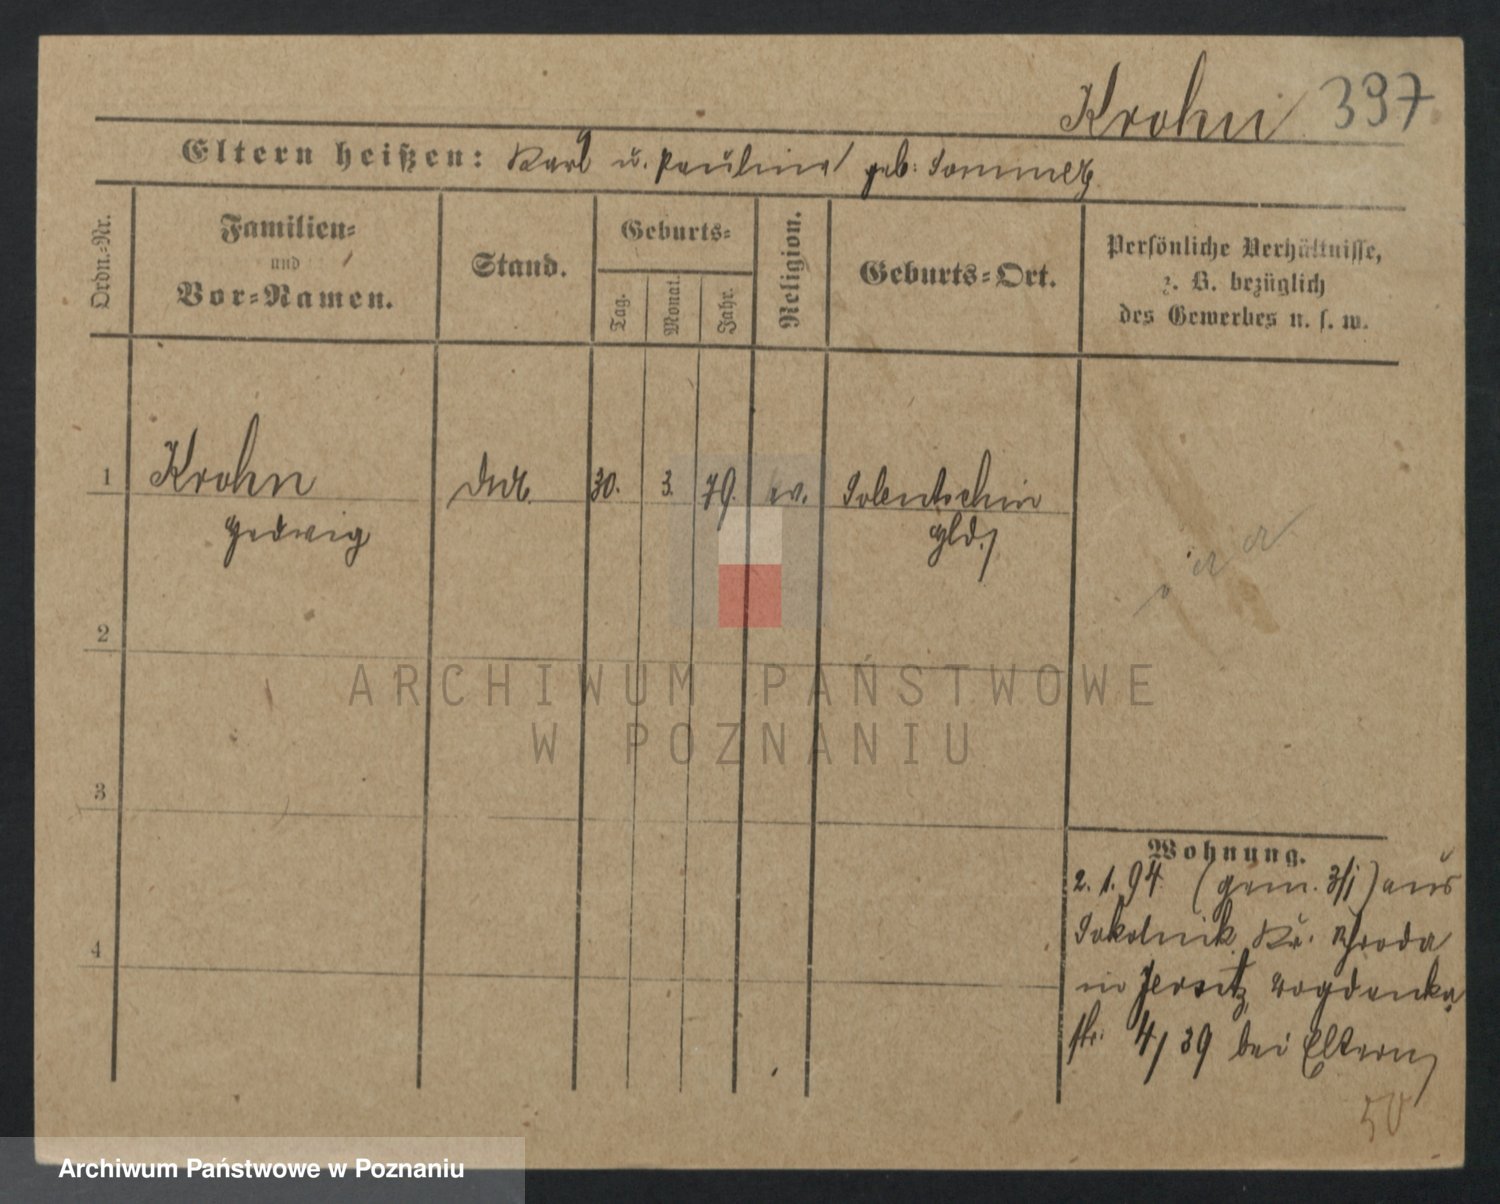 Krohn 337
Eltern heißen: Karl u. Pauline geb: Sommer
Ordn.-Nr.
Familien-
und
Vor-Namen.
Stand.
Geburts-
Tag.
Monat.
Jahr.
Religion.
Geburts-Ort.
Persönliche Verhältnisse,
z. B. bezüglich
des Gewerbes u. s. w.
1 Krohn 30. 3. 79. ev. Solentschin
Hedwig
2
3
4
Wohnung.
2. 1. 94. (gem. 3/1) aus
Sokolnik Kr. Schroda
in Jersitz, Bogdanka
str. 4/39 bei Eltern
50
ARCHIWUM PAŃSTWOWE
W POZNANIU
Archiwum Państwowe w Poznaniu